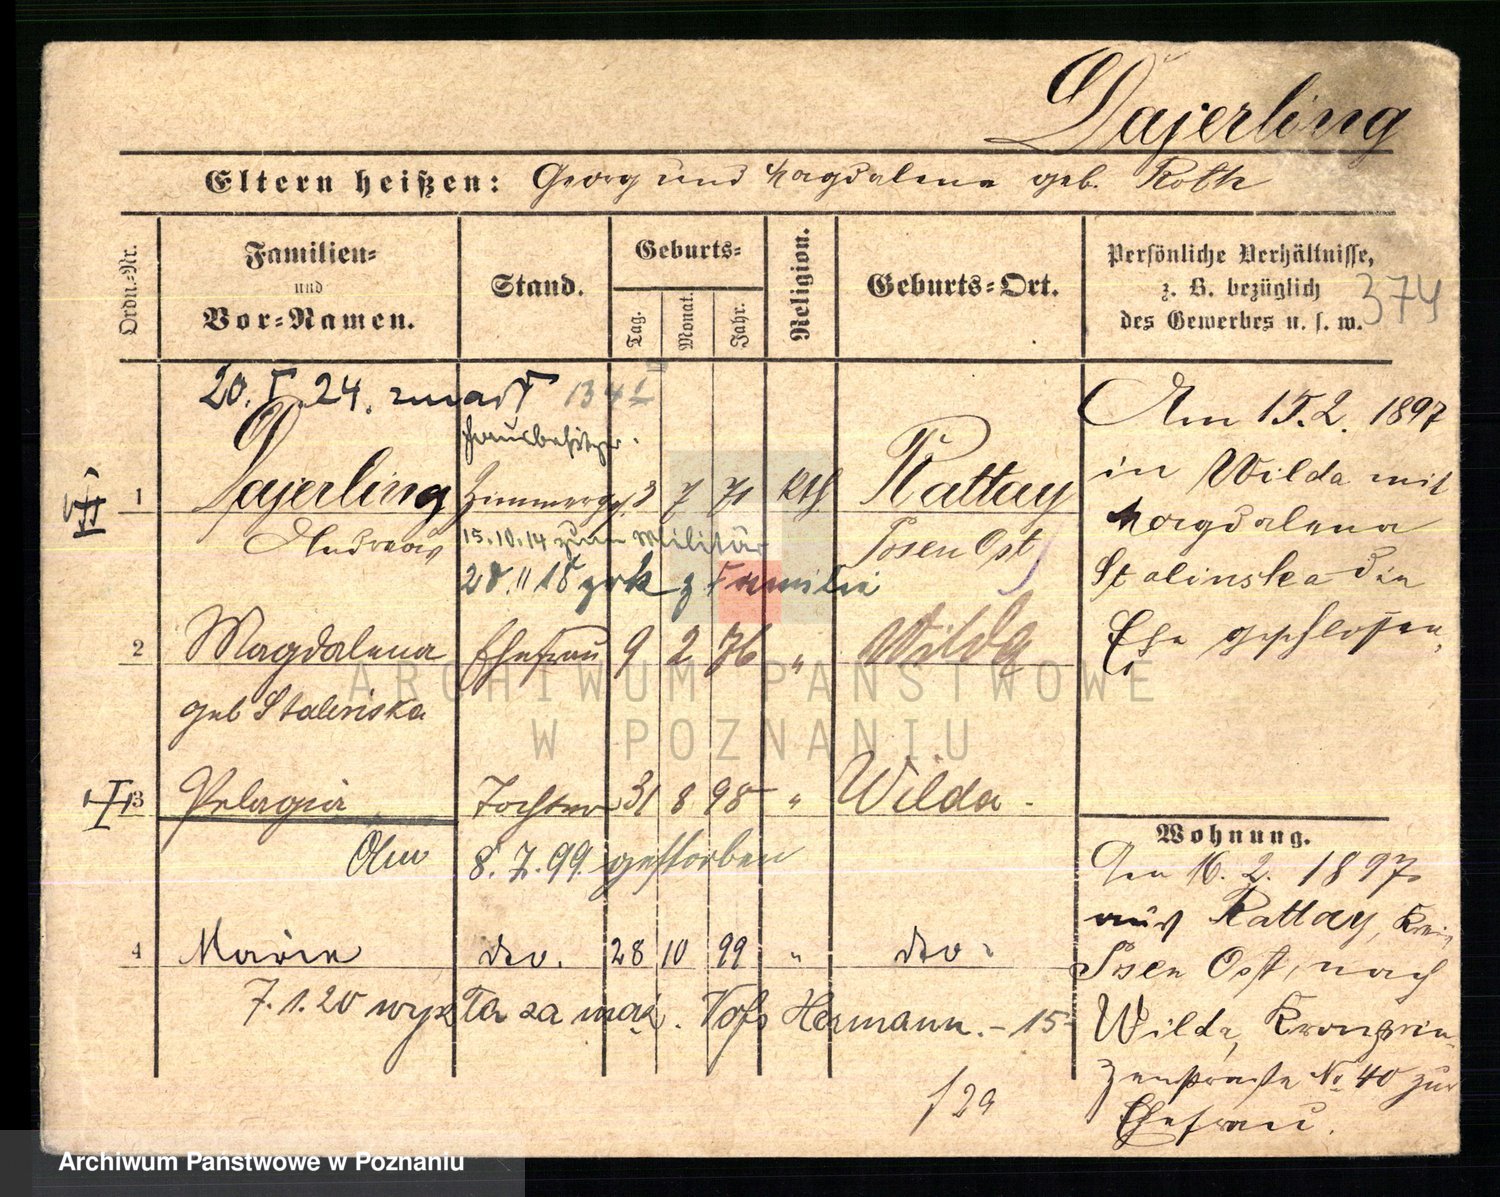 Dajerling
Eltern heißen: Georg und Magdalena geb. Roth
Ordn.-Nr.
Familien-
und
Vor-Namen.
Stand.
Geburts-
Tag.
Monat.
Jahr.
Religion.
Geburts-Ort.
Persönliche Verhältnisse,
z. B. bezüglich
des Gewerbes u. s. w.
374
20. I. 24. zmarł 1341
Hausbesitzer.
1 Dajerling Zimmerges. 3 7 71 kth Rattay
Andreas
15.10.14 zum Militär
Posen Ost
28. II 18 zrk z Familie
2 Magdalena Ehefrau 9 2 76 " Wilda
geb Stalinska
3 Pelagia Tochter 31 8 98 " Wilda.
8. 7. 99. gestorben
4 Marie dto. 28 10 99 " dto.
7. 1. 20 wyszła za mąż. Voss Hermann. - 15 -
f 29
Am 15.2. 1897
in Wilda mit
Magdalena
Stalinska die
Ehe geschlossen.
Wohnung.
Den 16. 2. 1897
aus Rattay, Kreis
Posen Ost, nach
Wilda, Kronprin-
zenstrasse No 40 zur
Ehefrau.
ARCHIWUM PAŃSTWOWE
W POZNANIU
Archiwum Państwowe w Poznaniu